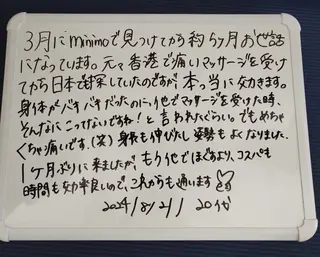 3月にminimoで見つけてから約5ヶ月お世話
になっています。元々香港で痛いマッサージを受け
てから日本で探していたのですが、本っ当に効きます。
身体がバキバキだったのに、他でマッサージを受けた時、
そんなにこってないですね！と言われたくらい。でもめちゃ
くちゃ痛いです。(笑)身長も伸びたし姿勢もよくなりました、
1ヶ月ぶりに来ましたが、もう他でほぐすより、コスパも
時間も効率良いので、これからも通います
2024/8/21 20代